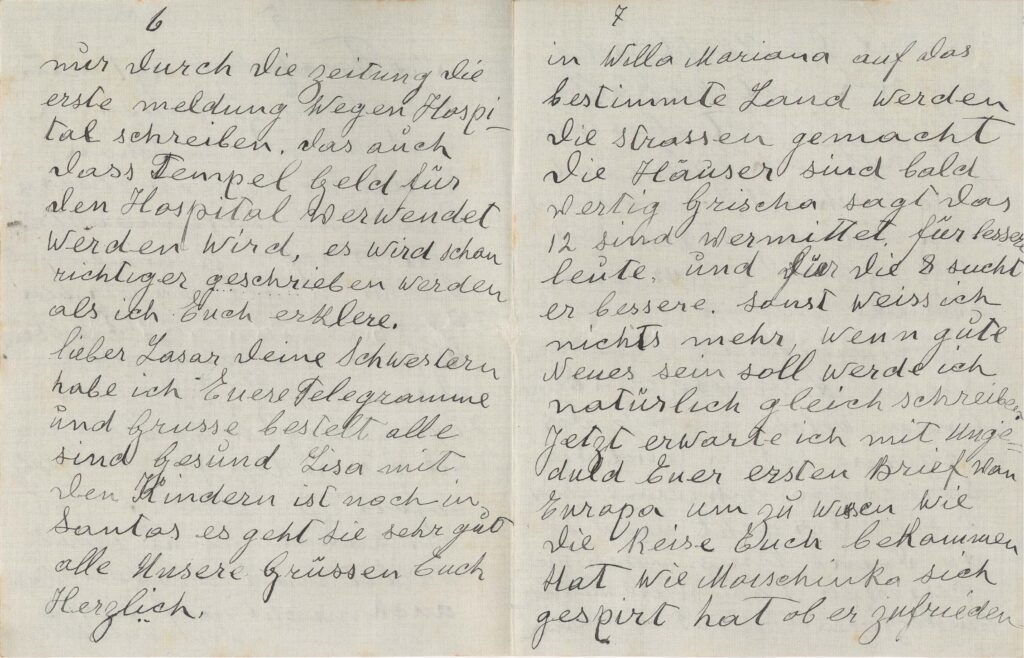 6
nur durch die zeitung die
erste meldung wegen Hospi-
tal schreiben. das auch
dass Tempel Geld für
den Hospital verwendet
werden wird, es wird schon
richtiger geschrieben werden
als ich Euch erklere.
lieber Lasar deine Schwestern
habe ich Euere Telegramme
und Grusse bestelt alle
sind Gesund Lisa mit
den Kindern ist noch in
Santos es geht sie sehr gut
alle Unsere Grüssen Euch
Herzlich.
7
in Willa Mariana auf das
bestimmte Land werden
die strassen gemacht
die Häuser sind bald
vertig Grischa sagt das
12 sind vermittet, für besser
leute. und für die 8 sucht
er bessere. sonst weiss ich
nichts mehr, wenn gute
Neues sein soll werde ich
natürlich gleich schreiben.
Jetzt erwarte ich mit Unge-
duld Euer ersten Brief van
Europa um zu wissen wie
die Reise Euch bekommen
Hat wie Marschinka sich
gespirt hat ob er zufrieden